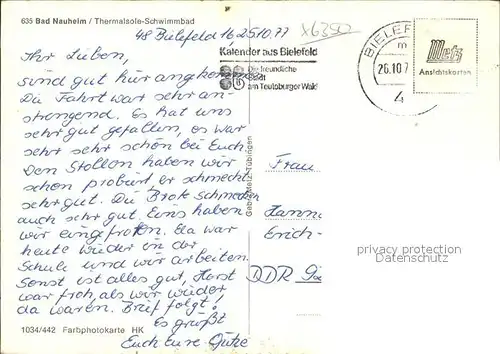 635 Bad Nauheim / Thermalsole-Schwimmbad
48 Bielefeld 16, 25.10.77
X6350
Ihr Lieben,
sind gut hier angekommen
Die Fahrt war sehr an-
strengend. Es hat uns
sehr gut gefallen, es war
sehr sehr schön bei Euch.
Den Stollen haben wir
schon probiert er schmeckt
sehr gut. Die Brote schmecken
auch sehr gut. Eins haben
wir eingefroren. Ela war
heute wieder in der
Schule und wir arbeiten.
Sonst ist alles gut, Horst
war froh, als wir wieder
da waren. Brief folgt!
Es grüßt
Euch Eure
1034/442 Farbphotokarte HK
Kalender aus Bielefeld
Die freundliche
Stadt
am Teutoburger Wald
BIELEF
m
26.10.7
4
Metz
Ansichtskarten
Gebr. Metz, Tübingen
Frau
Hann
Erich-
DDR
privacy protection
Datenschutz